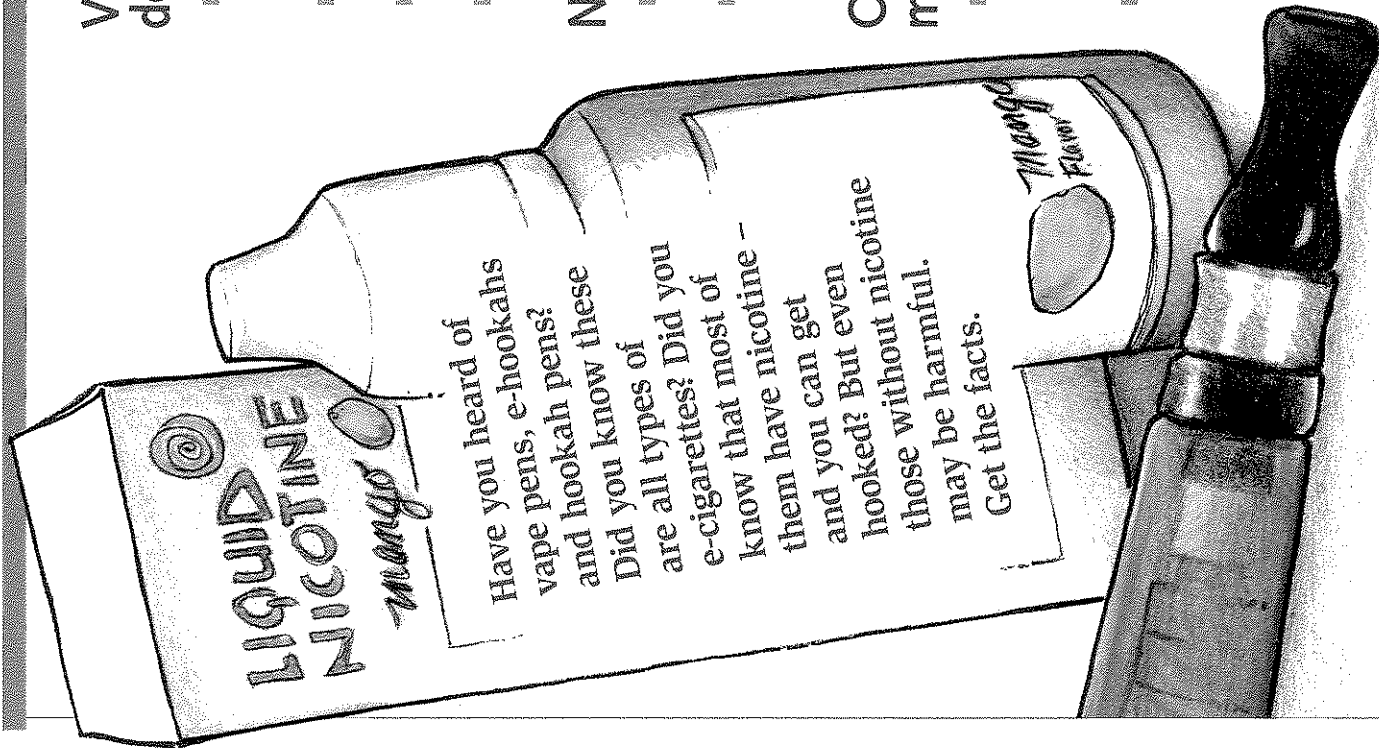 LIQUID
NICOTINE
mango
Mango
Flavor
Have you heard of
vape pens, e-hookahs
and hookah pens?
Did you know these
are all types of
e-cigarettes? Did you
know that most of
them have nicotine –
and you can get
hooked? But even
those without nicotine
may be harmful.
Get the facts.